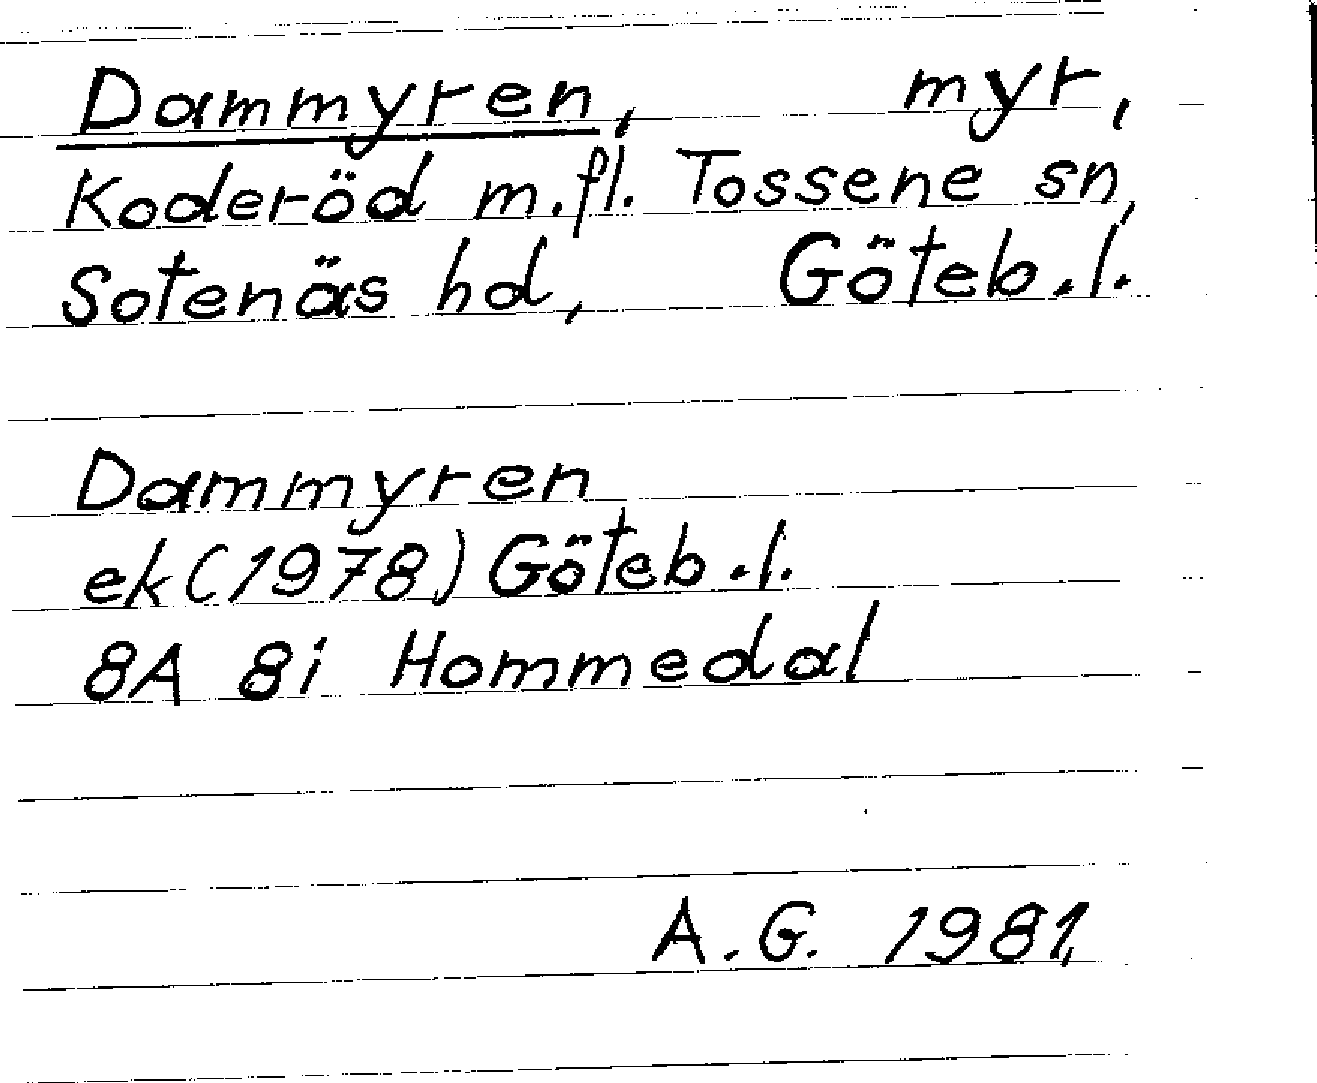 Dammyren, myr,
Koderöd m.fl. Tossene sn,
Sotenäs hd, Göteb.l.
Dammyren
ek (1978) Göteb.l.
8A 8i Hommedal
A.G. 1981,